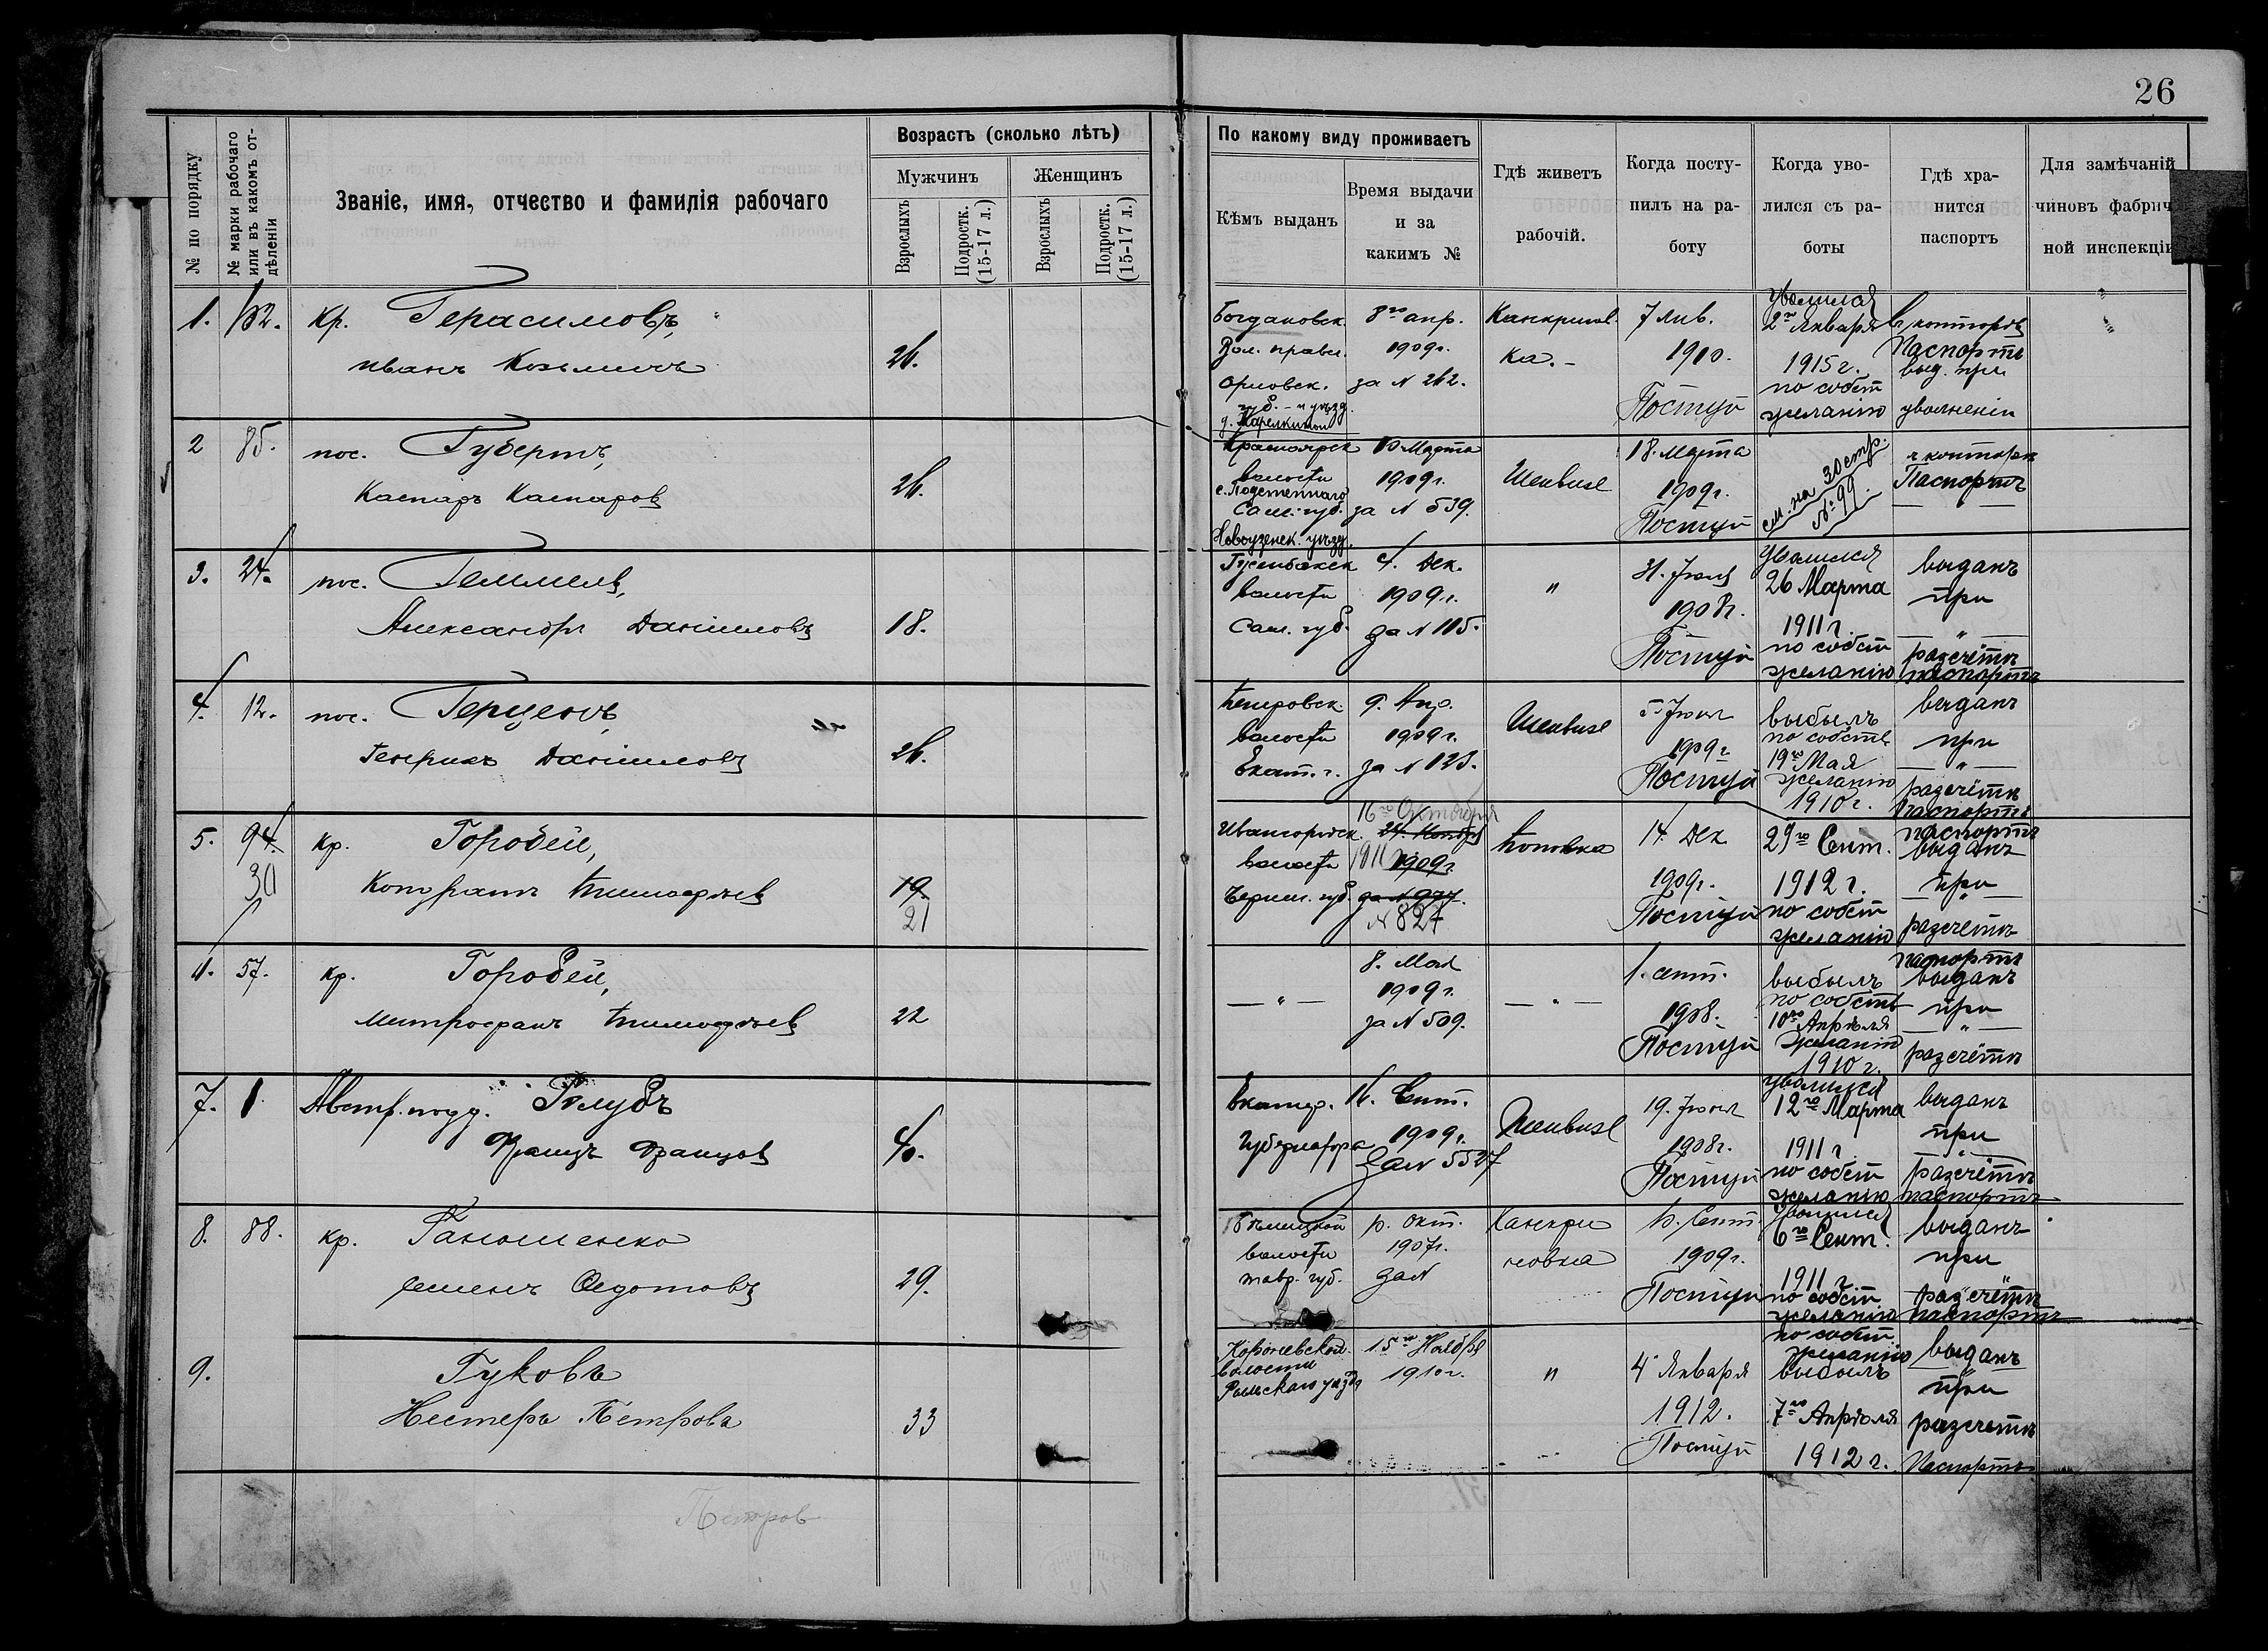 26
№ по порядку
№ марки рабочаго или въ какомъ отдѣленіи
Званіе, имя, отчество и фамилія рабочаго
Возрастъ (сколько лѣтъ)
Мужчинъ
Женщинъ
Взрослыхъ
Подростк. (15-17 л.)
Взрослыхъ
Подростк. (15-17 л.)
По какому виду проживаетъ
Кѣмъ выданъ
Время выдачи
и за
какимъ №
Гдѣ живетъ
рабочій.
Когда посту-
пилъ на ра-
боту
Когда уво-
лился съ ра-
боты
Гдѣ хра-
нится
паспортъ
Для замѣчаній
чиновъ фабрич
ной инспекціи
1. 152. кр. Герасимовъ,
Иванъ Козьмичъ
26.
Богдановск.
Вол. правл.
Орловск.
губ. - и уѣзд.
8го апр.
1909г.
за N 262.
Канкринов
ка.-
7 янв.
1910.
Поступ
Уволился
2го Января
1915 г.
по собст
желанію
В конторѣ
Паспортъ
выд. при
увольненіи
2 85. пос. Губертъ,
Каспаръ Каспаров
26.
Красноярск
волости
с. Подстепнаго
Сам. губ.
Новоузенск. уѣзд.
10 Марта
1909г.
за N 539.
Шенвизе
18. Марта
1909г.
Поступ
см. на 30 стр.
№ 99.
в конторѣ
Паспортъ
3. 24. пос. Геммель,
Александръ Даніиловъ
18.
волости
Сам. губ.
4. Дек.
1909г.
за N 115.
"
31. Іюля
1908г.
Поступ
Уволился
26 Марта
1911 г.
по собст
желанію
выданъ
при
— " —
разсчётѣ
паспортъ
4. 12. пос. Герценъ,
Генрихъ Даніиловъ
26.
волости
Екат. г.
9. Апр.
1909г.
за N 123.
Шенвизе
5 Іюня
1909г
Поступ
выбылъ
по собств
19го Мая
желанію
1910 г.
выданъ
при
— " —
разсчётѣ
паспортъ
5. 94. кр. Городей,
30
Кондратъ Тимофѣев
19
21
Ивангородск.
волости
Черниг. губ.
16го Октября
24. Ноября
1911 1909г.
за N 977.
N 827
Поповка
14. Дек
1909г.
Поступ
29го Сент.
1912 г.
по собст
желанію
паспортъ
выданъ
при
— " —
разсчётѣ
6. 57. кр. Городей,
Митрофанъ Тимофѣев
22
— " —
8. Мая
1909г.
за N 509.
— " —
1. сент.
1908.
Поступ
выбылъ
по собств
10го Апрѣля
желанію
1910 г.
паспортъ
выданъ
при
— " —
разсчётѣ
7. 1. Австр. подд. Голубъ
Францъ Францов
40.
Екатер.
Губернатора
16. Сент.
1909г.
За N 5527
Шенвизе
19. Іюня
1908г.
Поступ
уволился
12го Марта
1911 г
по собст
желанію
выданъ
при
"
разсчётѣ
паспортъ
8. 88. кр. Ганошенко
Семенъ Федотовъ
29.
волости
тавр. губ.
окт.
1907г.
за N
Канкри
новка
Сент.
1909г.
Поступ
Уволился
6го Сент.
1911 г.
по собст
желанію
выданъ
при
"
разсчётѣ
паспортъ
9. Гуковъ
Нестеръ Петрова
33
волости
Рыльскаго уѣзда
15го Ноября
1910г.
"
4 Января
1912.
Поступ
по собст
желанію
выбылъ
7го Апрѣля
1912 г.
выданъ
"
при
разсчетѣ
Паспортъ
Петров